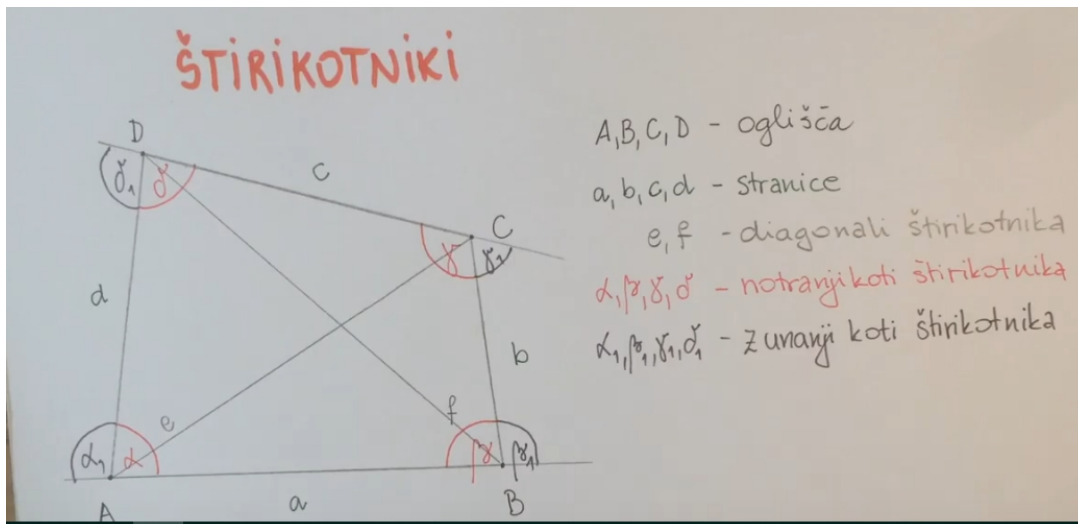 ŠTIRIKOTNIKI
D
δ₁ δ
c
C
γ γ₁
d
b
e
f
α₁ α
β β₁
A
a
B
A, B, C, D - oglišča
a, b, c, d - stranice
e, f - diagonali štirikotnika
α, β, γ, δ - notranji koti štirikotnika
α₁, β₁, γ₁, δ₁ - zunanji koti štirikotnika